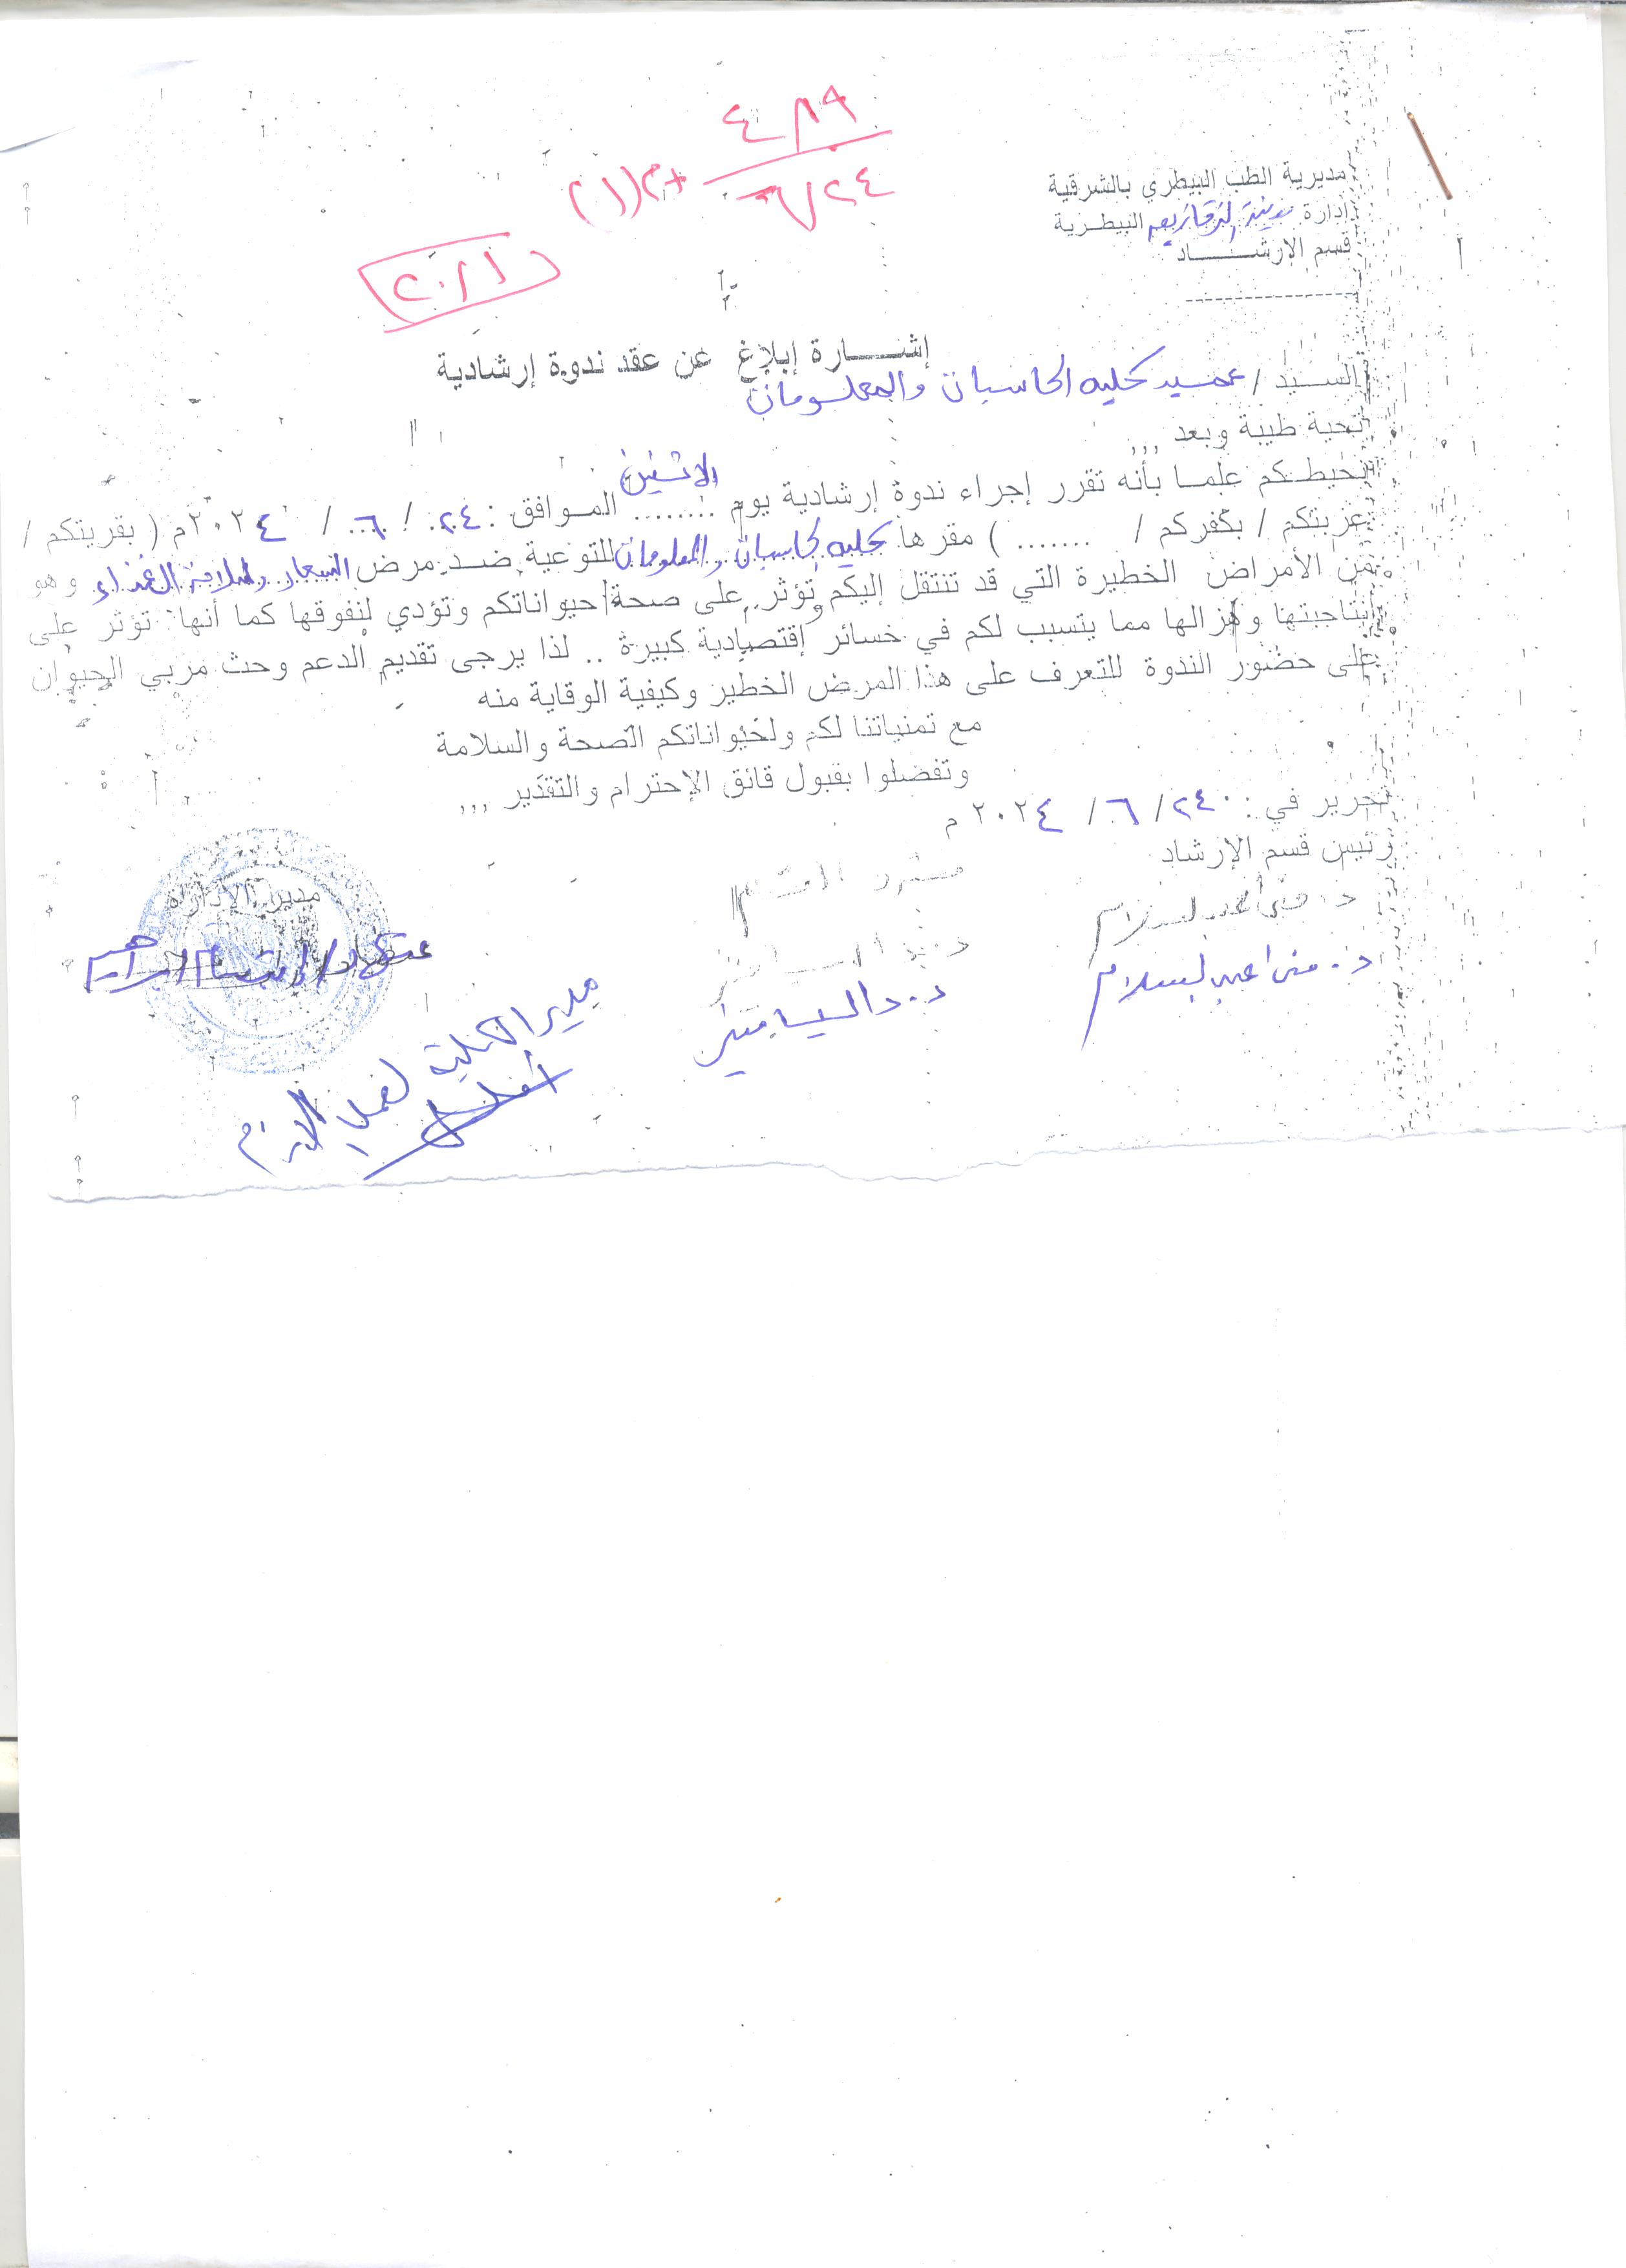 ٤٨٩
٦/٢٤
٢٠/١
مديرية الطب البيطري بالشرقية
إدارة مدينة الزقازيق البيطرية
قسم الإرشـــــاد
إشـــارة إبلاغ عن عقد ندوة إرشادية
السيد / عميد كليه الحاسبات والمعلومات
تحية طيبة وبعد ,,,
نحيطكم علما بأنه تقرر إجراء ندوة إرشادية يوم الاثنين الموافق : ٢٤ / ٦ / ٢٠٢٤م ( بقريتكم /
عزبتكم / بكفركم / ....... ) مقرها كليه حاسبات والمعلومات للتوعية ضد مرض السعار وسلامة الغذاء وهو
من الأمراض الخطيرة التي قد تنتقل إليكم وتؤثر على صحة حيواناتكم وتؤدي لنفوقها كما أنها تؤثر على
إنتاجيتها وهزالها مما يتسبب لكم في خسائر إقتصادية كبيرة .. لذا يرجى تقديم الدعم وحث مربي الحيوان
على حضور الندوة للتعرف على هذا المرض الخطير وكيفية الوقاية منه
مع تمنياتنا لكم ولحيواناتكم الصحة والسلامة
وتفضلوا بقبول فائق الإحترام والتقدير ,,,
تحرير في : ٢٤ / ٦ / ٢٠٢٤ م
رئيس قسم الإرشاد
مدير الإدارة
د. منى عبد السلام
د. منى عبد السلام
د. داليا
مدير الكلية
لعمل اللازم